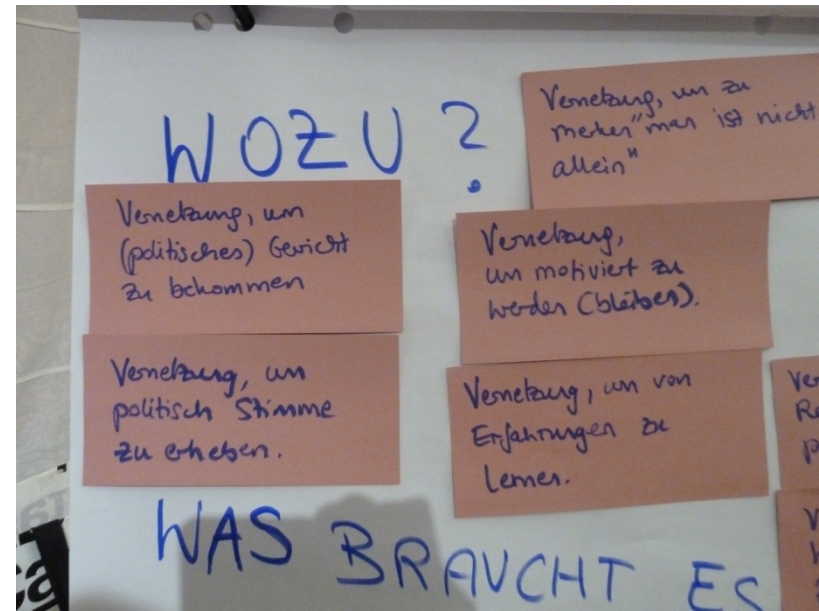 WOZU?
Vernetzung, um zu
merken "man ist nicht
allein"
Vernetzung, um
(politisches) Gewicht
zu bekommen
Vernetzung,
um motiviert zu
werden (bleiben).
Vernetzung, um
politisch Stimme
zu erheben.
Vernetzung, um von
Erfahrungen zu
lernen.
WAS BRAUCHT ES